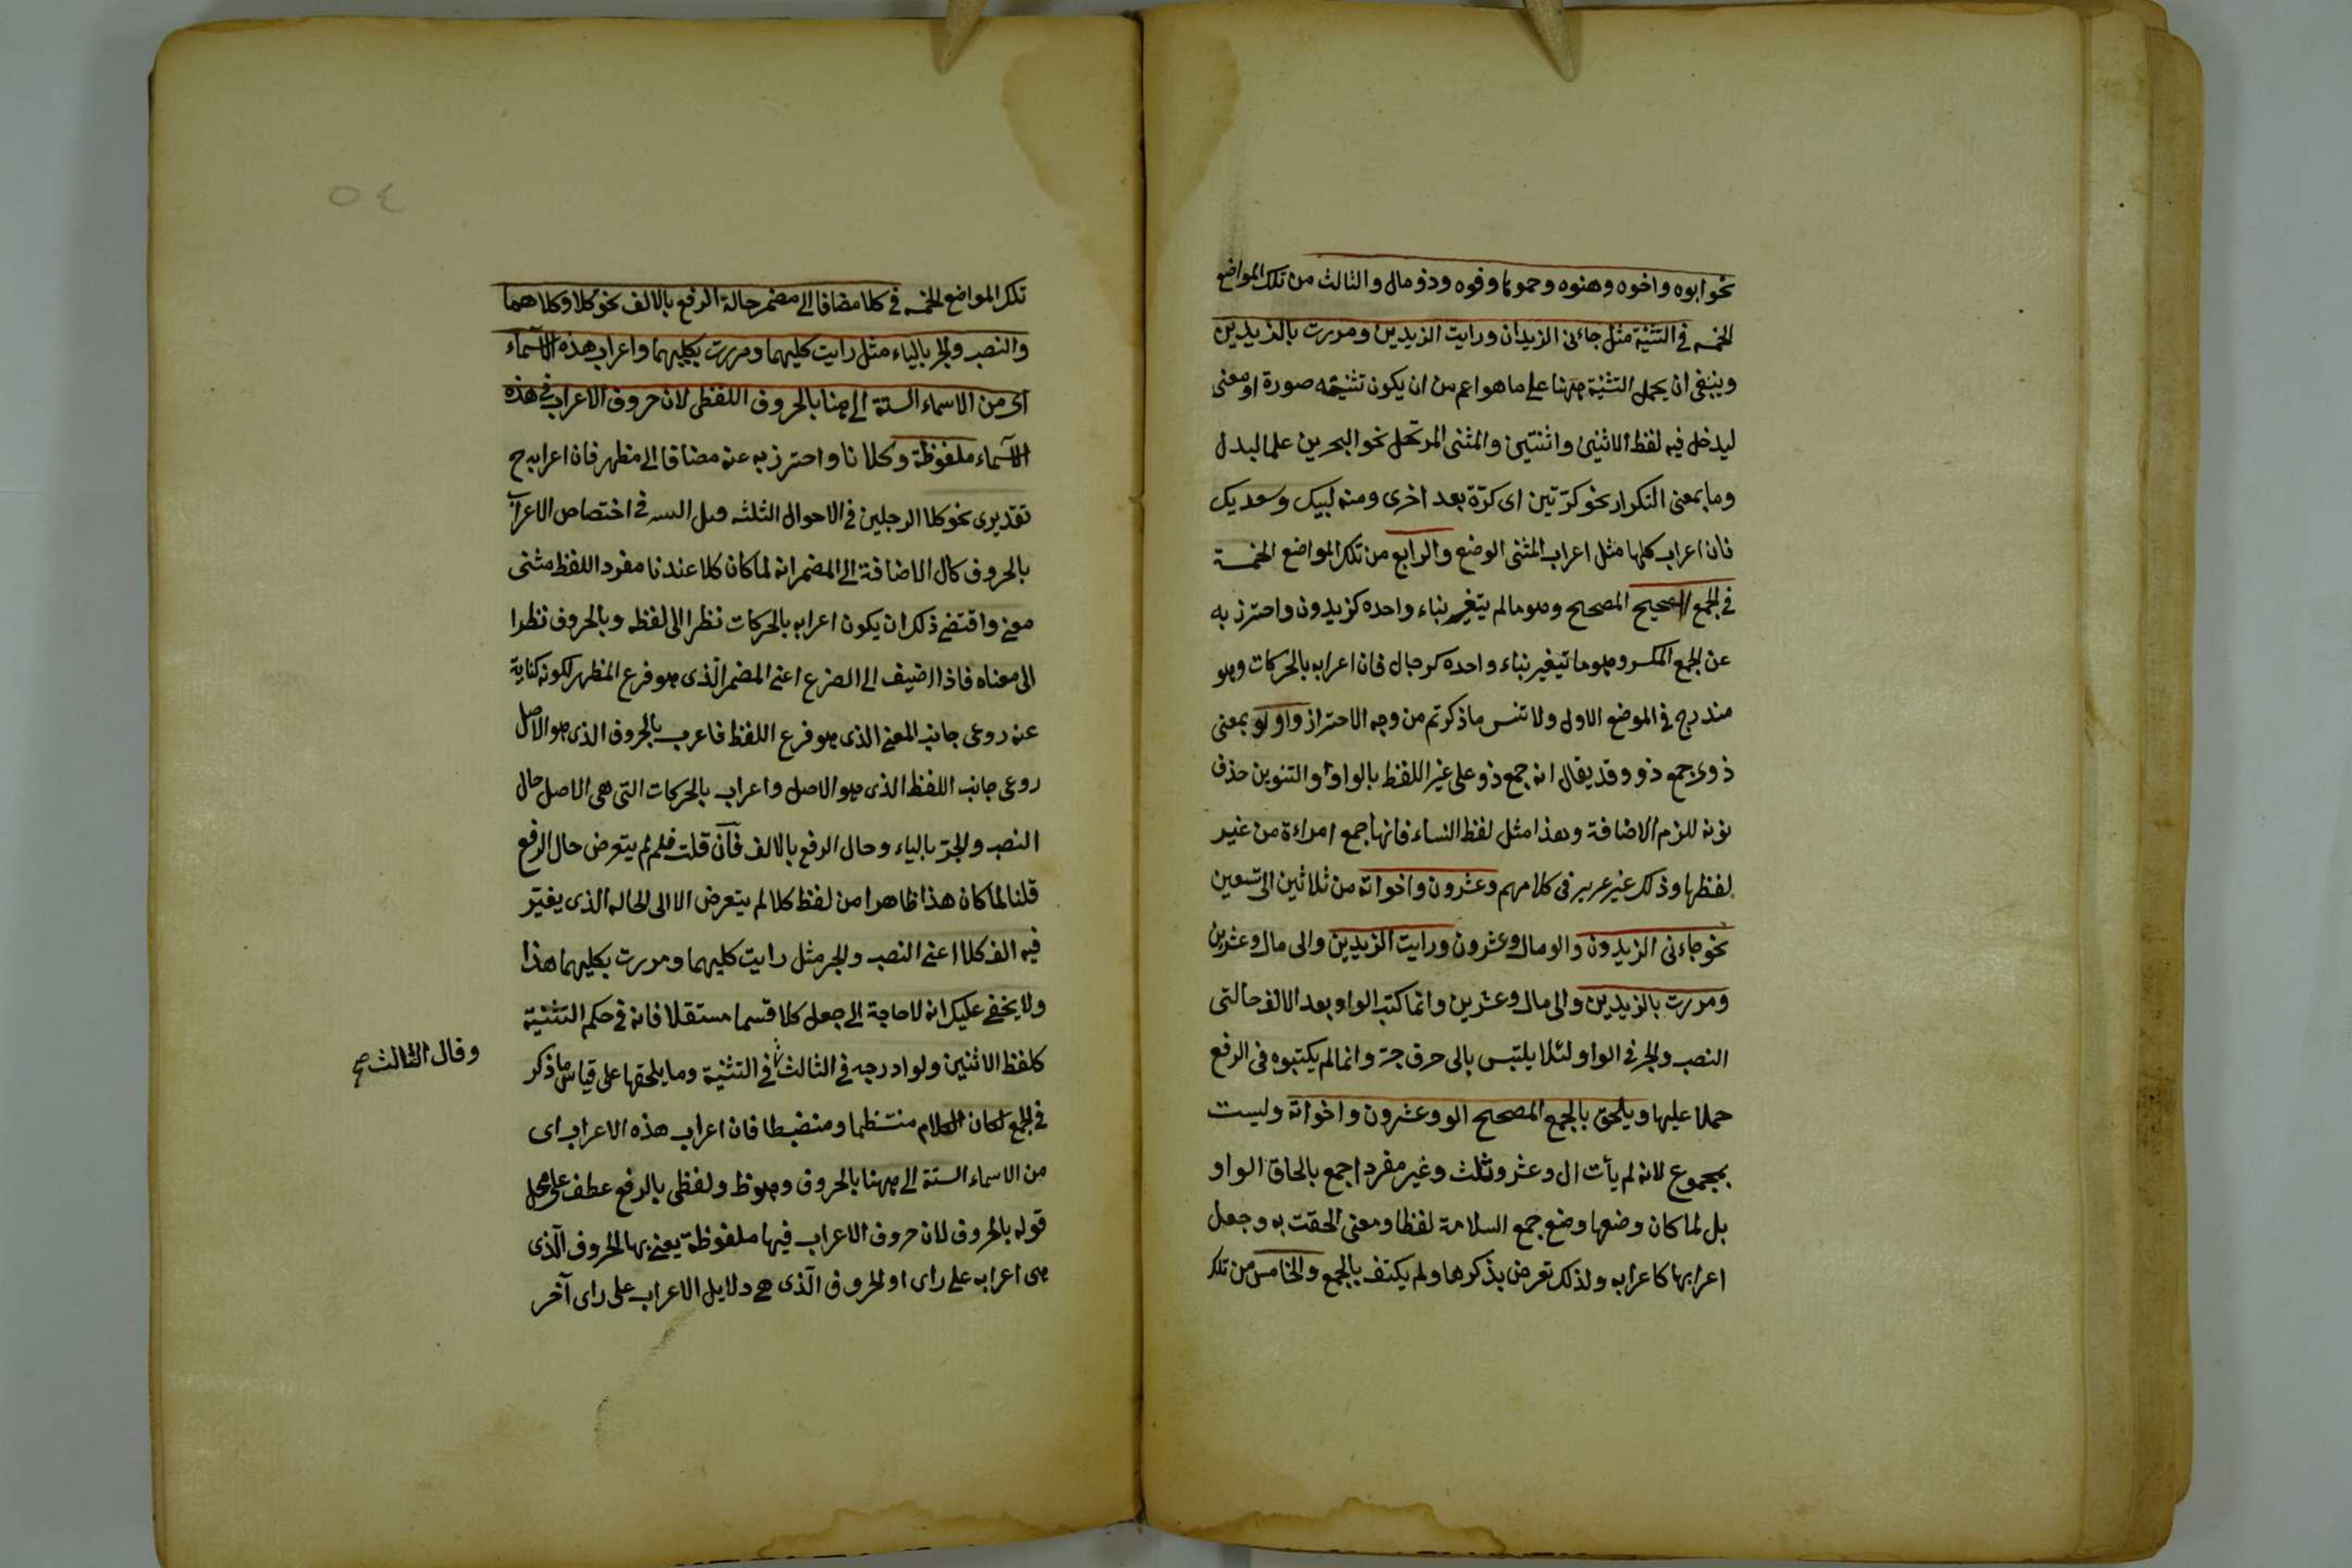 نحو ابوه واخوه وهنوه وحموها وفوه وذو مال والثالث من تلك المواضع
الخمسه فى التثنية مثل جاءنى الزيدان ورايت الزيدين ومررت بالزيدين
وينبغى ان يحمل التثنية ههنا على ما هو اعم من ان يكون تثنيته صورة او معنى
ليدخل فيه لفظ الاثنين واثنتين والمثنى المرتجل نحو البحرين علما لبلد
وما بمعنى التكرار نحو كرّتين اى كرّة بعد اخرى ومنه لبيك وسعديك
فان اعراب كلها مثل اعراب المثنى الوضع والرابع من تلك المواضع الخمسة
فى الجمع المصحح وهو ما لم يتغير بناء واحده كزيدون واحترز به
عن الجمع المكسر وهو ما تيغير بناء واحده كرجال فان اعرابه بالحركات وهو
مندرج فى الموضع الاول ولا تنس ما ذكرتم من وجه الاحتراز واولو بمعنى
ذوى جمع ذو وقد يقال انه جمع ذو على غير اللفظ بالواو والتنوين حذف
نونه للزم الاضافة وهذا مثل لفظ النساء فانها جمع امراءة من غير
لفظها وذلك غير عزيز فى كلامهم وعشرون واخواته من ثلاثين الى تسعين
نحو جاءنى الزيدون والو مال وعشرون ورايت الزيدين والى مال وعشرين
ومررت بالزيدين والى مال وعشرين وانما كتب الواو بعد الالف حالتى
النصب والجر فى الواو لئلا يلتبس بالى حرف جرّ وانما لم يكتبوه فى الرفع
حملا عليها ويلحق بالجمع المصحح الو وعشرون واخواته وليست
بمجموع لانه لم يأت ال وعشر وثلث وغير مفردا جمع بالحاق الواو
بل لما كان وضعها وضع جمع السلامة لفظا ومعنى الحقت به وجعل
اعرابها كاعرابه ولذلك تعرض بذكرها ولم يكتف بالجمع والخامس من تلك
٥٤
تلك المواضع الخمسه فى كلا مضافا الى مضمر حالة الرفع بالالف نحو كلا وكلاهما
والنصب والجر بالياء مثل رايت كليهما ومررت بكليهما واعراب هذه الاسماء
اى من الاسماء الستة الى هنا بالحروف اللفظى لان حروف الاعراب فى هذه
الاسماء ملفوظة وكلانا واحترز به عنه مضافا الى مظهر فان اعرابه ح
تقديرى نحو كلا الرجلين فى الاحوال الثلثه فى اختصاص الاعراب
بالحروف كال الاضافة الى المضمر انه لما كان كلا عندنا مفرد اللفظ مثنى
معنى واقتضى ذلك ان يكون اعرابه بالحركات نظرا الى لفظه وبالحروف نظرا
الى معناه فاذا اضيف الى الفرع اعنى المضمر الّذى هو فرع المظهر لكونه كناية
عنه روعى جانب المعنى الذى هو فرع اللفظ فاعرب بالحروف الذى هو الاصل
روعى جانب اللفظ الذى هو الاصل واعراب بالحركات التى هى الاصل حال
النصب والجرّ بالياء وحال الرفع بالالف فان قلت فلم لم يتعرض حال الرفع
قلنا لما كان هذا ظاهرا من لفظ كلا لم يتعرض الا الى الحاله الذى يغيّر
فيه الف كلا اعنى النصب والجر مثل رايت كليهما ومررت بكليهما هذا
ولا يخفى عليك انه لا حاجة الى جعل كلا قسما مستقلا فانه فى حكم التثنية
كلفظ الاثنين ولو ادرجه فى الثالث فى التثنية وما يلحقها على قياس ما ذكر
وقال الثالث صح
فى الجمع لكان الكلام منتظما ومنضبطا فان اعراب هذه الاعراب اى
من الاسماء الستة الى ههنا بالحروف وهو ظ ولفظى بالرفع عطف على محل
قوله بالحروف لان حروف الاعراب فيها ملفوظة يعنى بها الحروف الّذى
هى اعرابه على راى او الحروف الّذى هى دلايل الاعراب على راى آخر